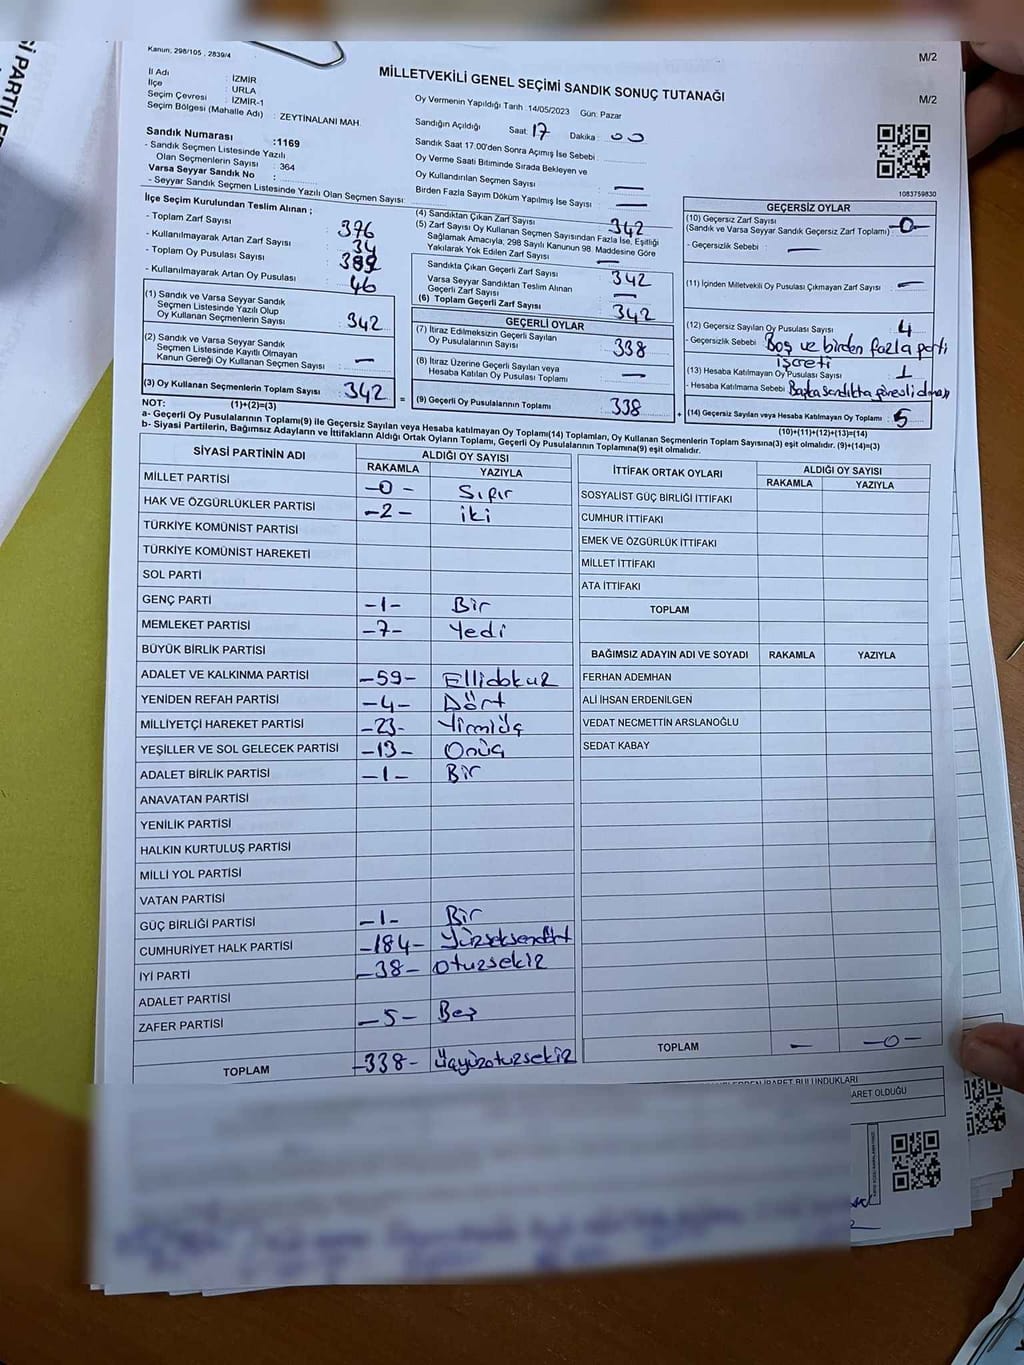 Sİ PARTİLE
Kanun, 298/105 , 2839/4
M/2
MİLLETVEKİLİ GENEL SEÇİMİ SANDIK SONUÇ TUTANAĞI
M/2
İl Adı : İZMİR
İlçe : URLA
Seçim Çevresi : İZMİR-1
Seçim Bölgesi (Mahalle Adı) : ZEYTİNALANI MAH.
Oy Vermenin Yapıldığı Tarih :14/05/2023 Gün: Pazar
Sandığın Açıldığı Saat: 17 Dakika : 00
Sandık Saat 17.00'den Sonra Açımış İse Sebebi :
Oy Verme Saati Bitiminde Sırada Bekleyen ve
Oy Kullandırılan Seçmen Sayısı : —
Birden Fazla Sayım Döküm Yapılmış İse Sayısı : —
Sandık Numarası :1169
- Sandık Seçmen Listesinde Yazılı
Olan Seçmenlerin Sayısı : 364
Varsa Seyyar Sandık No :
- Seyyar Sandık Seçmen Listesinde Yazılı Olan Seçmen Sayısı:
1083759830
İlçe Seçim Kurulundan Teslim Alınan ;
- Toplam Zarf Sayısı : 376
- Kullanılmayarak Artan Zarf Sayısı : 34
- Toplam Oy Pusulası Sayısı
- Kullanılmayarak Artan Oy Pusulası : 46
(1) Sandık ve Varsa Seyyar Sandık
Seçmen Listesinde Yazılı Olup
Oy Kullanan Seçmenlerin Sayısı : 342
(2) Sandık ve Varsa Seyyar Sandık
Seçmen Listesinde Kayıtlı Olmayan
Kanun Gereği Oy Kullanan Seçmen Sayısı : —
(3) Oy Kullanan Seçmenlerin Toplam Sayısı : 342
(4) Sandıktan Çıkan Zarf Sayısı : 342
(5) Zarf Sayısı Oy Kullanan Seçmen Sayısından Fazla İse, Eşitliği
Sağlamak Amacıyla; 298 Sayılı Kanunun 98. Maddesine Göre
Yakılarak Yok Edilen Zarf Sayısı : —
Sandıkta Çıkan Geçerli Zarf Sayısı : 342
Varsa Seyyar Sandıktan Teslim Alınan
Geçerli Zarf Sayısı : —
(6) Toplam Geçerli Zarf Sayısı : 342
GEÇERLİ OYLAR
(7) İtiraz Edilmeksizin Geçerli Sayılan
Oy Pusulalarının Sayısı : 338
(8) İtiraz Üzerine Geçerli Sayılan veya
Hesaba Katılan Oy Pusulası Toplamı : —
= (9) Geçerli Oy Pusulalarının Toplamı : 338 +
GEÇERSİZ OYLAR
(10) Geçersiz Zarf Sayısı
(Sandık ve Varsa Seyyar Sandık Geçersiz Zarf Toplamı) : -0-
- Geçersizlik Sebebi : —
(11) İçinden Milletvekili Oy Pusulası Çıkmayan Zarf Sayısı : —
(12) Geçersiz Sayılan Oy Pusulası Sayısı : 4
- Geçersizlik Sebebi : Boş ve birden fazla parti
işareti
(13) Hesaba Katılmayan Oy Pusulası Sayısı : 1
- Hesaba Katılmama Sebebi : Başka sandıkta görevli olması
(14) Geçersiz Sayılan veya Hesaba Katılmayan Oy Toplamı : 5
NOT: (1)+(2)=(3)
(10)+(11)+(12)+(13)=(14)
a- Geçerli Oy Pusulalarının Toplamı(9) ile Geçersiz Sayılan veya Hesaba katılmayan Oy Toplamı(14) Toplamları, Oy Kullanan Seçmenlerin Toplam Sayısına(3) eşit olmalıdır. (9)+(14)=(3)
b- Siyasi Partilerin, Bağımsız Adayların ve İttifakların Aldığı Ortak Oyların Toplamı, Geçerli Oy Pusulalarının Toplamına(9) eşit olmalıdır.
SİYASİ PARTİNİN ADI ALDIĞI OY SAYISI
RAKAMLA YAZIYLA
MİLLET PARTİSİ -0- Sıfır
HAK VE ÖZGÜRLÜKLER PARTİSİ -2- iki
TÜRKİYE KOMÜNİST PARTİSİ
TÜRKİYE KOMÜNİST HAREKETİ
SOL PARTİ
GENÇ PARTİ -1- Bir
MEMLEKET PARTİSİ -7- Yedi
BÜYÜK BİRLİK PARTİSİ
ADALET VE KALKINMA PARTİSİ -59- Ellidokuz
YENİDEN REFAH PARTİSİ -4- Dört
MİLLİYETÇİ HAREKET PARTİSİ -23- Yirmiüç
YEŞİLLER VE SOL GELECEK PARTİSİ -13- Onüç
ADALET BİRLİK PARTİSİ -1- Bir
ANAVATAN PARTİSİ
YENİLİK PARTİSİ
HALKIN KURTULUŞ PARTİSİ
MİLLİ YOL PARTİSİ
VATAN PARTİSİ
GÜÇ BİRLİĞİ PARTİSİ -1- Bir
CUMHURİYET HALK PARTİSİ -184- Yüzseksendört
İYİ PARTİ -38- Otuzsekiz
ADALET PARTİSİ
ZAFER PARTİSİ -5- Beş
TOPLAM -338- Üçyüzotuzsekiz
İTTİFAK ORTAK OYLARI ALDIĞI OY SAYISI
RAKAMLA YAZIYLA
SOSYALİST GÜÇ BİRLİĞİ İTTİFAKI
CUMHUR İTTİFAKI
EMEK VE ÖZGÜRLÜK İTTİFAKI
MİLLET İTTİFAKI
ATA İTTİFAKI
TOPLAM
BAĞIMSIZ ADAYIN ADI VE SOYADI RAKAMLA YAZIYLA
FERHAN ADEMHAN
ALİ İHSAN ERDENİLGEN
VEDAT NECMETTİN ARSLANOĞLU
SEDAT KABAY
TOPLAM — -0-
İBARET BULUNDUKLARI
ARET OLDUĞU